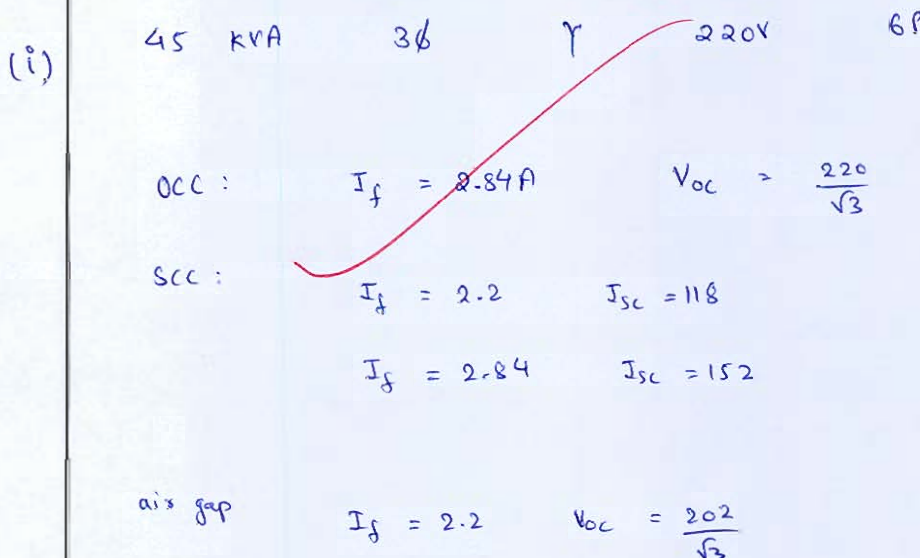 (i) 45 KVA 3ϕ Y 220V 6P
OCC : I_f = 2.84A V_OC = 220/√3
SCC :
I_f = 2.2 I_SC = 118
I_f = 2.84 I_SC = 152
air gap I_f = 2.2 V_OC = 202/√3